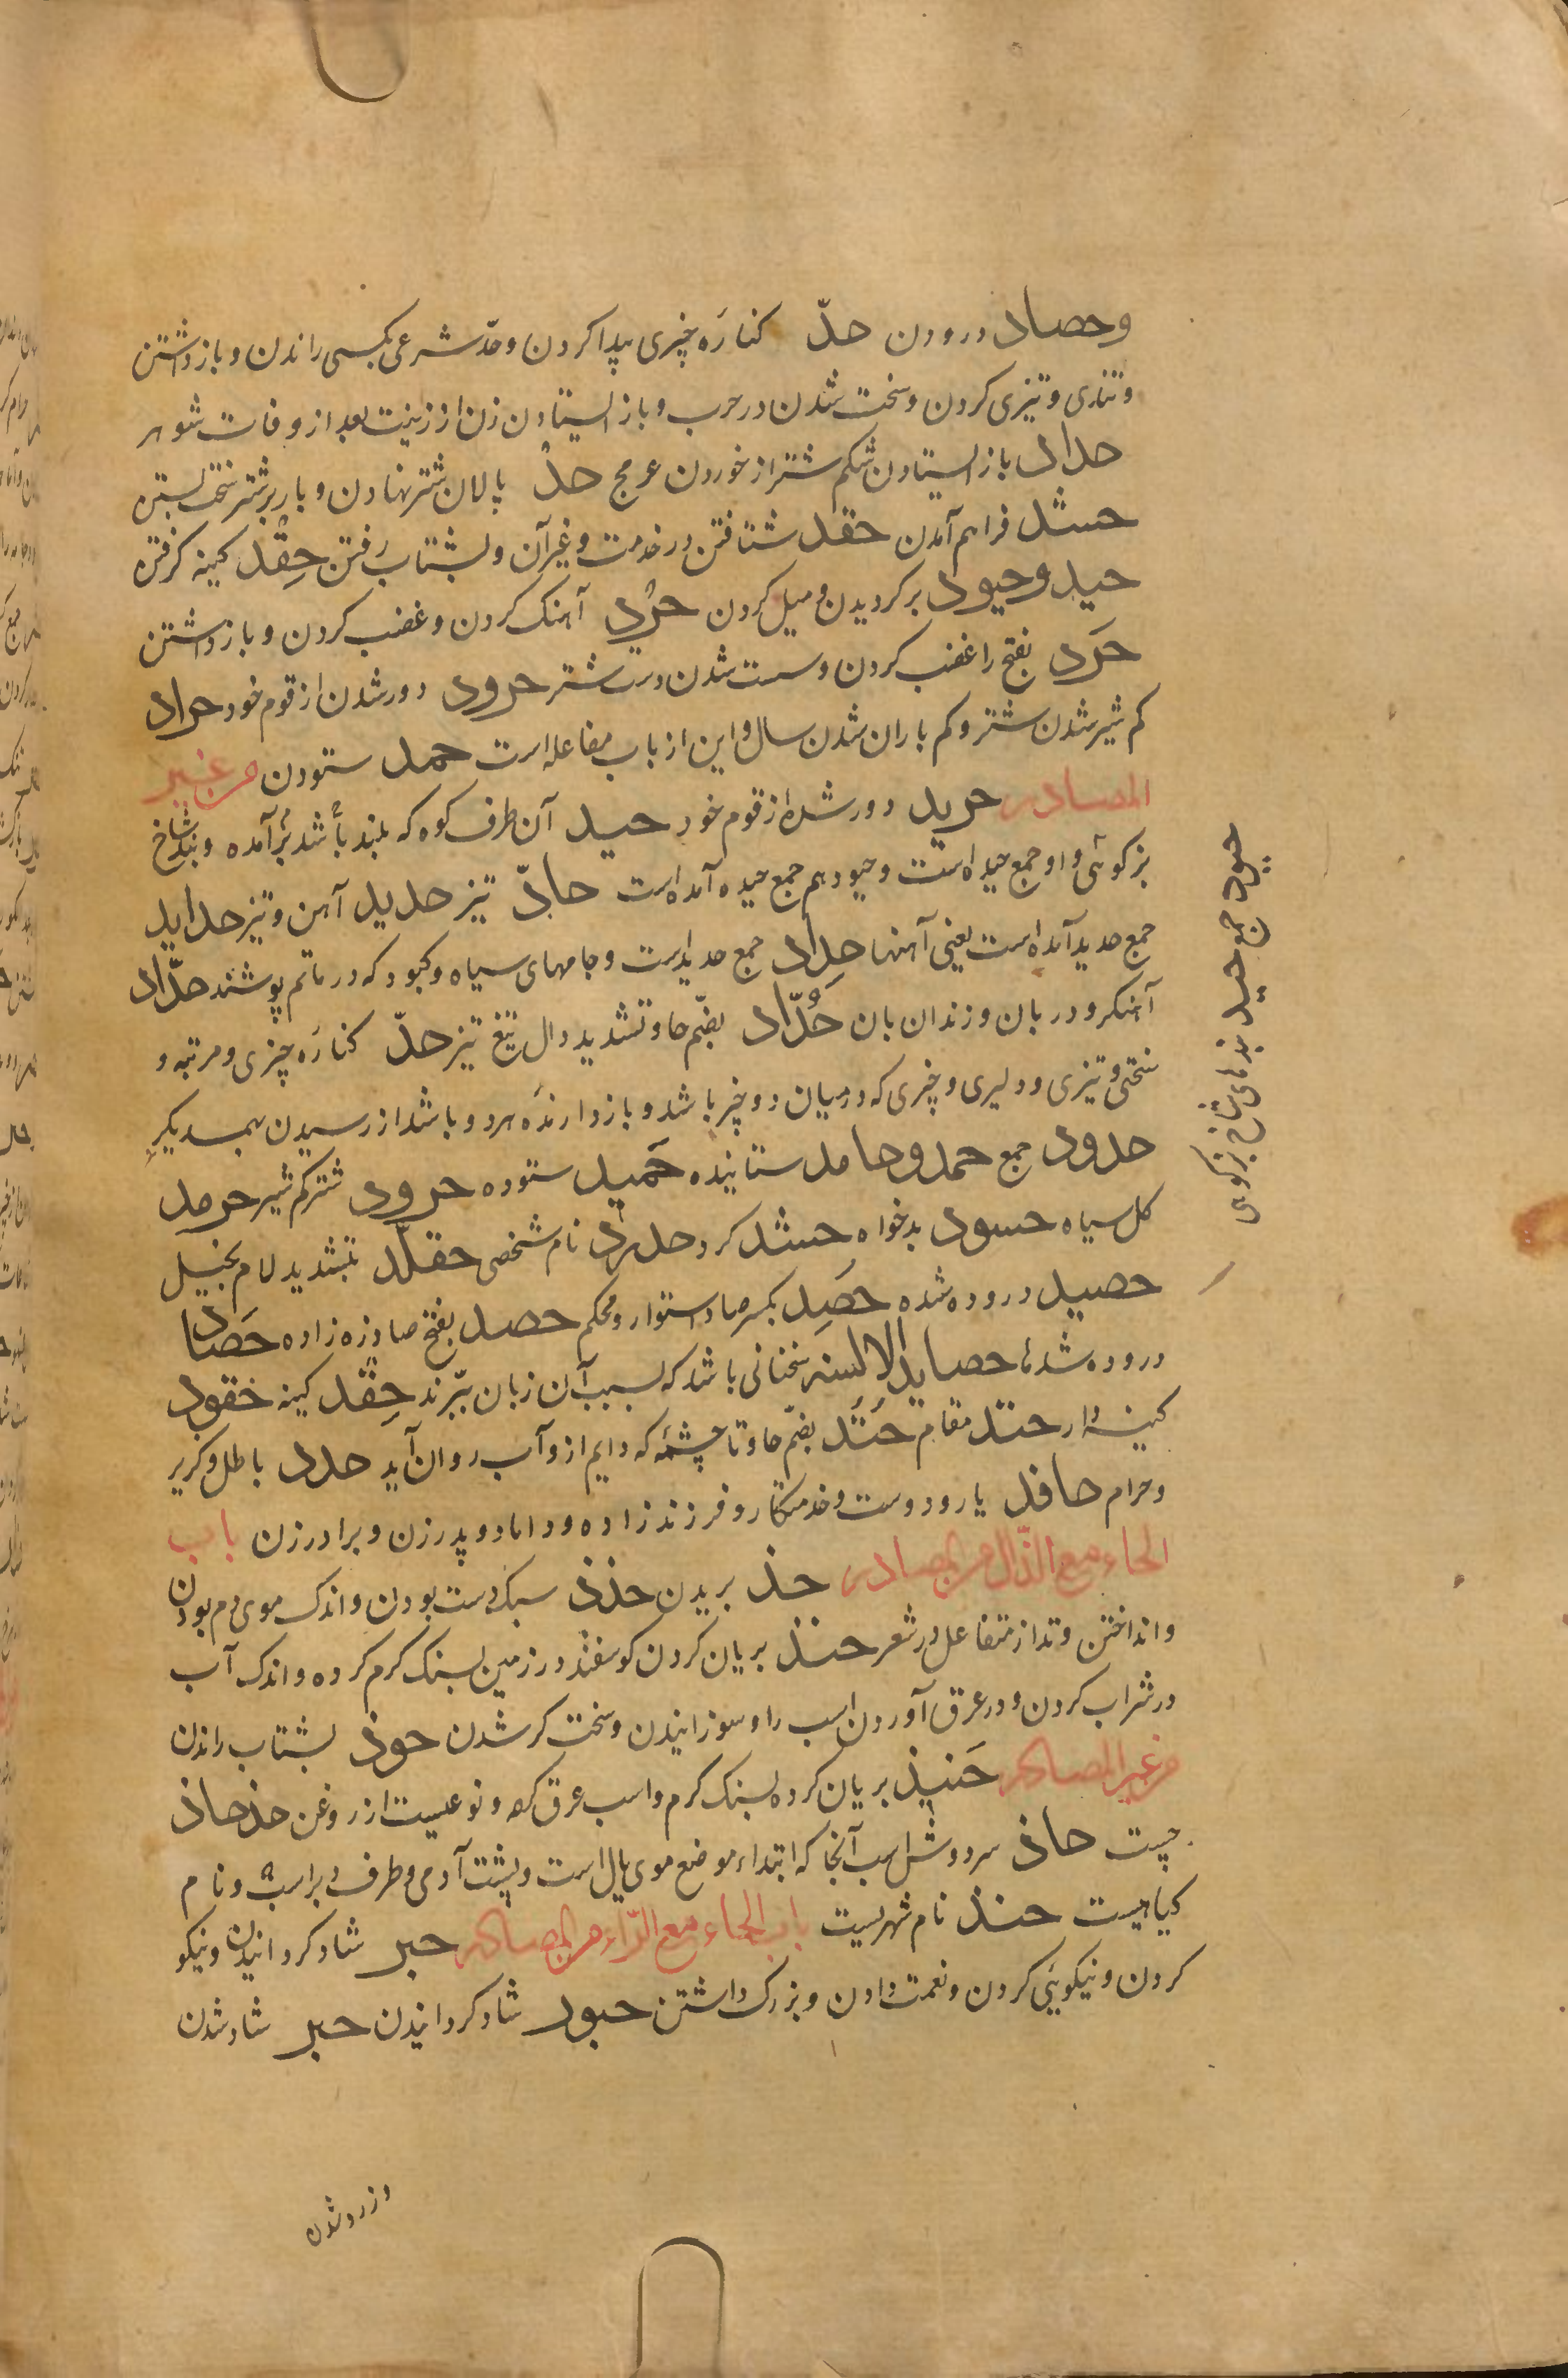 وحصاد درودن حدّ کنارَه چیزی پیدا کردن وحدّ شرعی بکسی راندن و بازداشتن
وتندی وتیزی کردن وسخت شدن در حرب و باز ایستادن زن از زینت بعد از وفات شوهر
حداد باز ایستادن شکم شتر از خوردن عرمج حدْ پالان شتر نهادن و بار بر شتر سخت بستن
حشد فراهم آمدن حفد شتافتن در خدمت و غیر آن و بشتاب رفتن حِقْد کینه گرفتن
حید وحیود برگردیدن و میل کردن حرْد آهنک کردن و غضب کردن و بازداشتن
حَرَد بفتح را غضب کردن و سست شدن دست شتر حرود دور شدن از قوم خود حراد
کم شیر شدن شتر و کم باران شدن سال و این از باب مفاعله است حمد ستودن من غیر
المصادر حرید دور شده از قوم خود حید آن طرف کوه که بلند باشد برآمده و بند شاخ
بز کوهی و او جمع حیده است و حیود هم جمع حیده آمده است حادّ تیز حدید آهن و تیز حداید
جمع حدید آمده است یعنی آهنها حِداد جمع حدید است و جامهای سیاه و کبود که در ماتم پوشند حدّاد
آهنکر و دربان و زندان بان حُدّاد بضمّ حا و تشدید دال تیغ تیز حدّ کنارَه چیزی و مرتبه و
سختی و تیزی و دلیری و چیزی که در میان دو چیز باشد و بازدارندَه هر دو باشد از رسیدن بهمدیکر
حدود جمع حمد و حامد ستاینده حَمید ستوده حرود شتر کم شیر حرمد
کل سیاه حسود بدخواه حشد کرد حدرد نام شخصی حقلّد بتشدید لام بخیل
حصید دروده شده حَصِد بکسر صاد استوار و محکم حصد بفتح صاد زه زاده حَصاد
دروده شدها حصاید الالسنه سخنانی باشد که بسبب آن زبان ببرّند حِقْد کینه حقود
کینه دار حتد مقام حُتُد بضمّ حا و تا چشمَه که دایم ازو آب روان آید حدد باطل و کریر
و حرام حافد یار و دوست و خدمتکار و فرزند زاده و داماد و پدر زن و برادر زن باب
الحاء مع الذّال من المصادر حذ بریدن حذذ سبک دست بودن و اندک موی دم بودن
و انداختن وتد از متفاعل در شعر حنذ بریان کردن کوسفند در زمین بسنک کرم کرده و اندک آب
در شراب کردن و در عرق آوردن اسب را و سوزانیدن و سخت کر شدن حوذ بشتاب راندن
من غیر المصادر حَنیذ بریان کرده بسنک کرم و اسب عرق کرده و نوعیست از روغن حذحاذ
چست حاذ سر دوش اسب آنجا که ابتداء موضع موی یال است و پشت آدمی و طرف دبر اسب و نام
کیاهیست حنذ نام شهریست باب الحاء مع الرّاء من المصادر حبر شاد کردانیدن و نیکو
کردن و نیکویئی کردن و نعمت دادن و بزرک داشتن حبور شاد کردانیدن حبر شاد شدن
و زرد شدن
حیود جمع حید بندهای شاخ بز کوهی